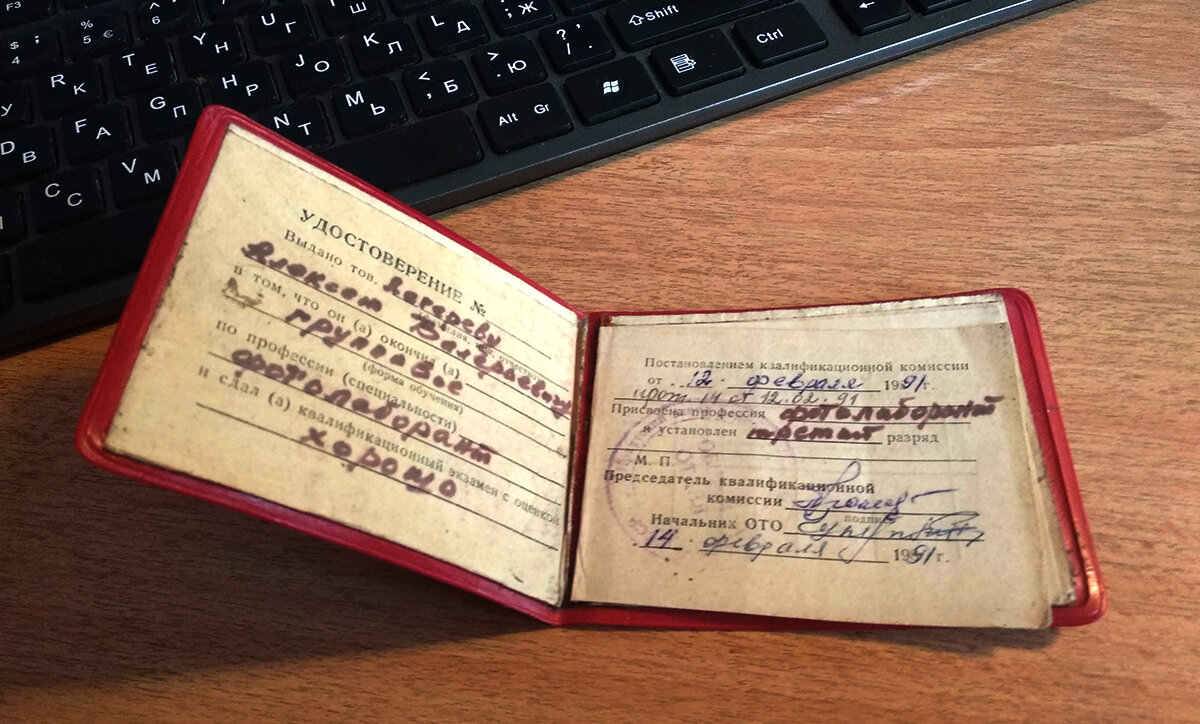 F3
$ ;
4
%
5 €
^
6
U Г
; Ж
Shift
Y Н
K Л
L Д
? /
Ctrl
T Е
J О
< , Б
> . Ю
R К
H Р
M Ь
G П
F А
N Т
Alt Gr
D В
V М
C С
УДОСТОВЕРЕНИЕ №
Выдано тов. Дегереву
Алексею Валерьевичу
в том, что он (а) окончил (а)
групповое
(форма обучения)
по профессии (специальности)
фотолаборант
и сдал (а) квалификационный экзамен с оценкой
хорошо
Постановлением квалификационной комиссии
от 12. февраля 1991г.
прот. 14 от 12.02.91
Присвоена профессия фотолаборант
и установлен третий разряд
М. П.
Председатель квалификационной
комиссии
подпись
Начальник ОТО
14. февраля 1991г.